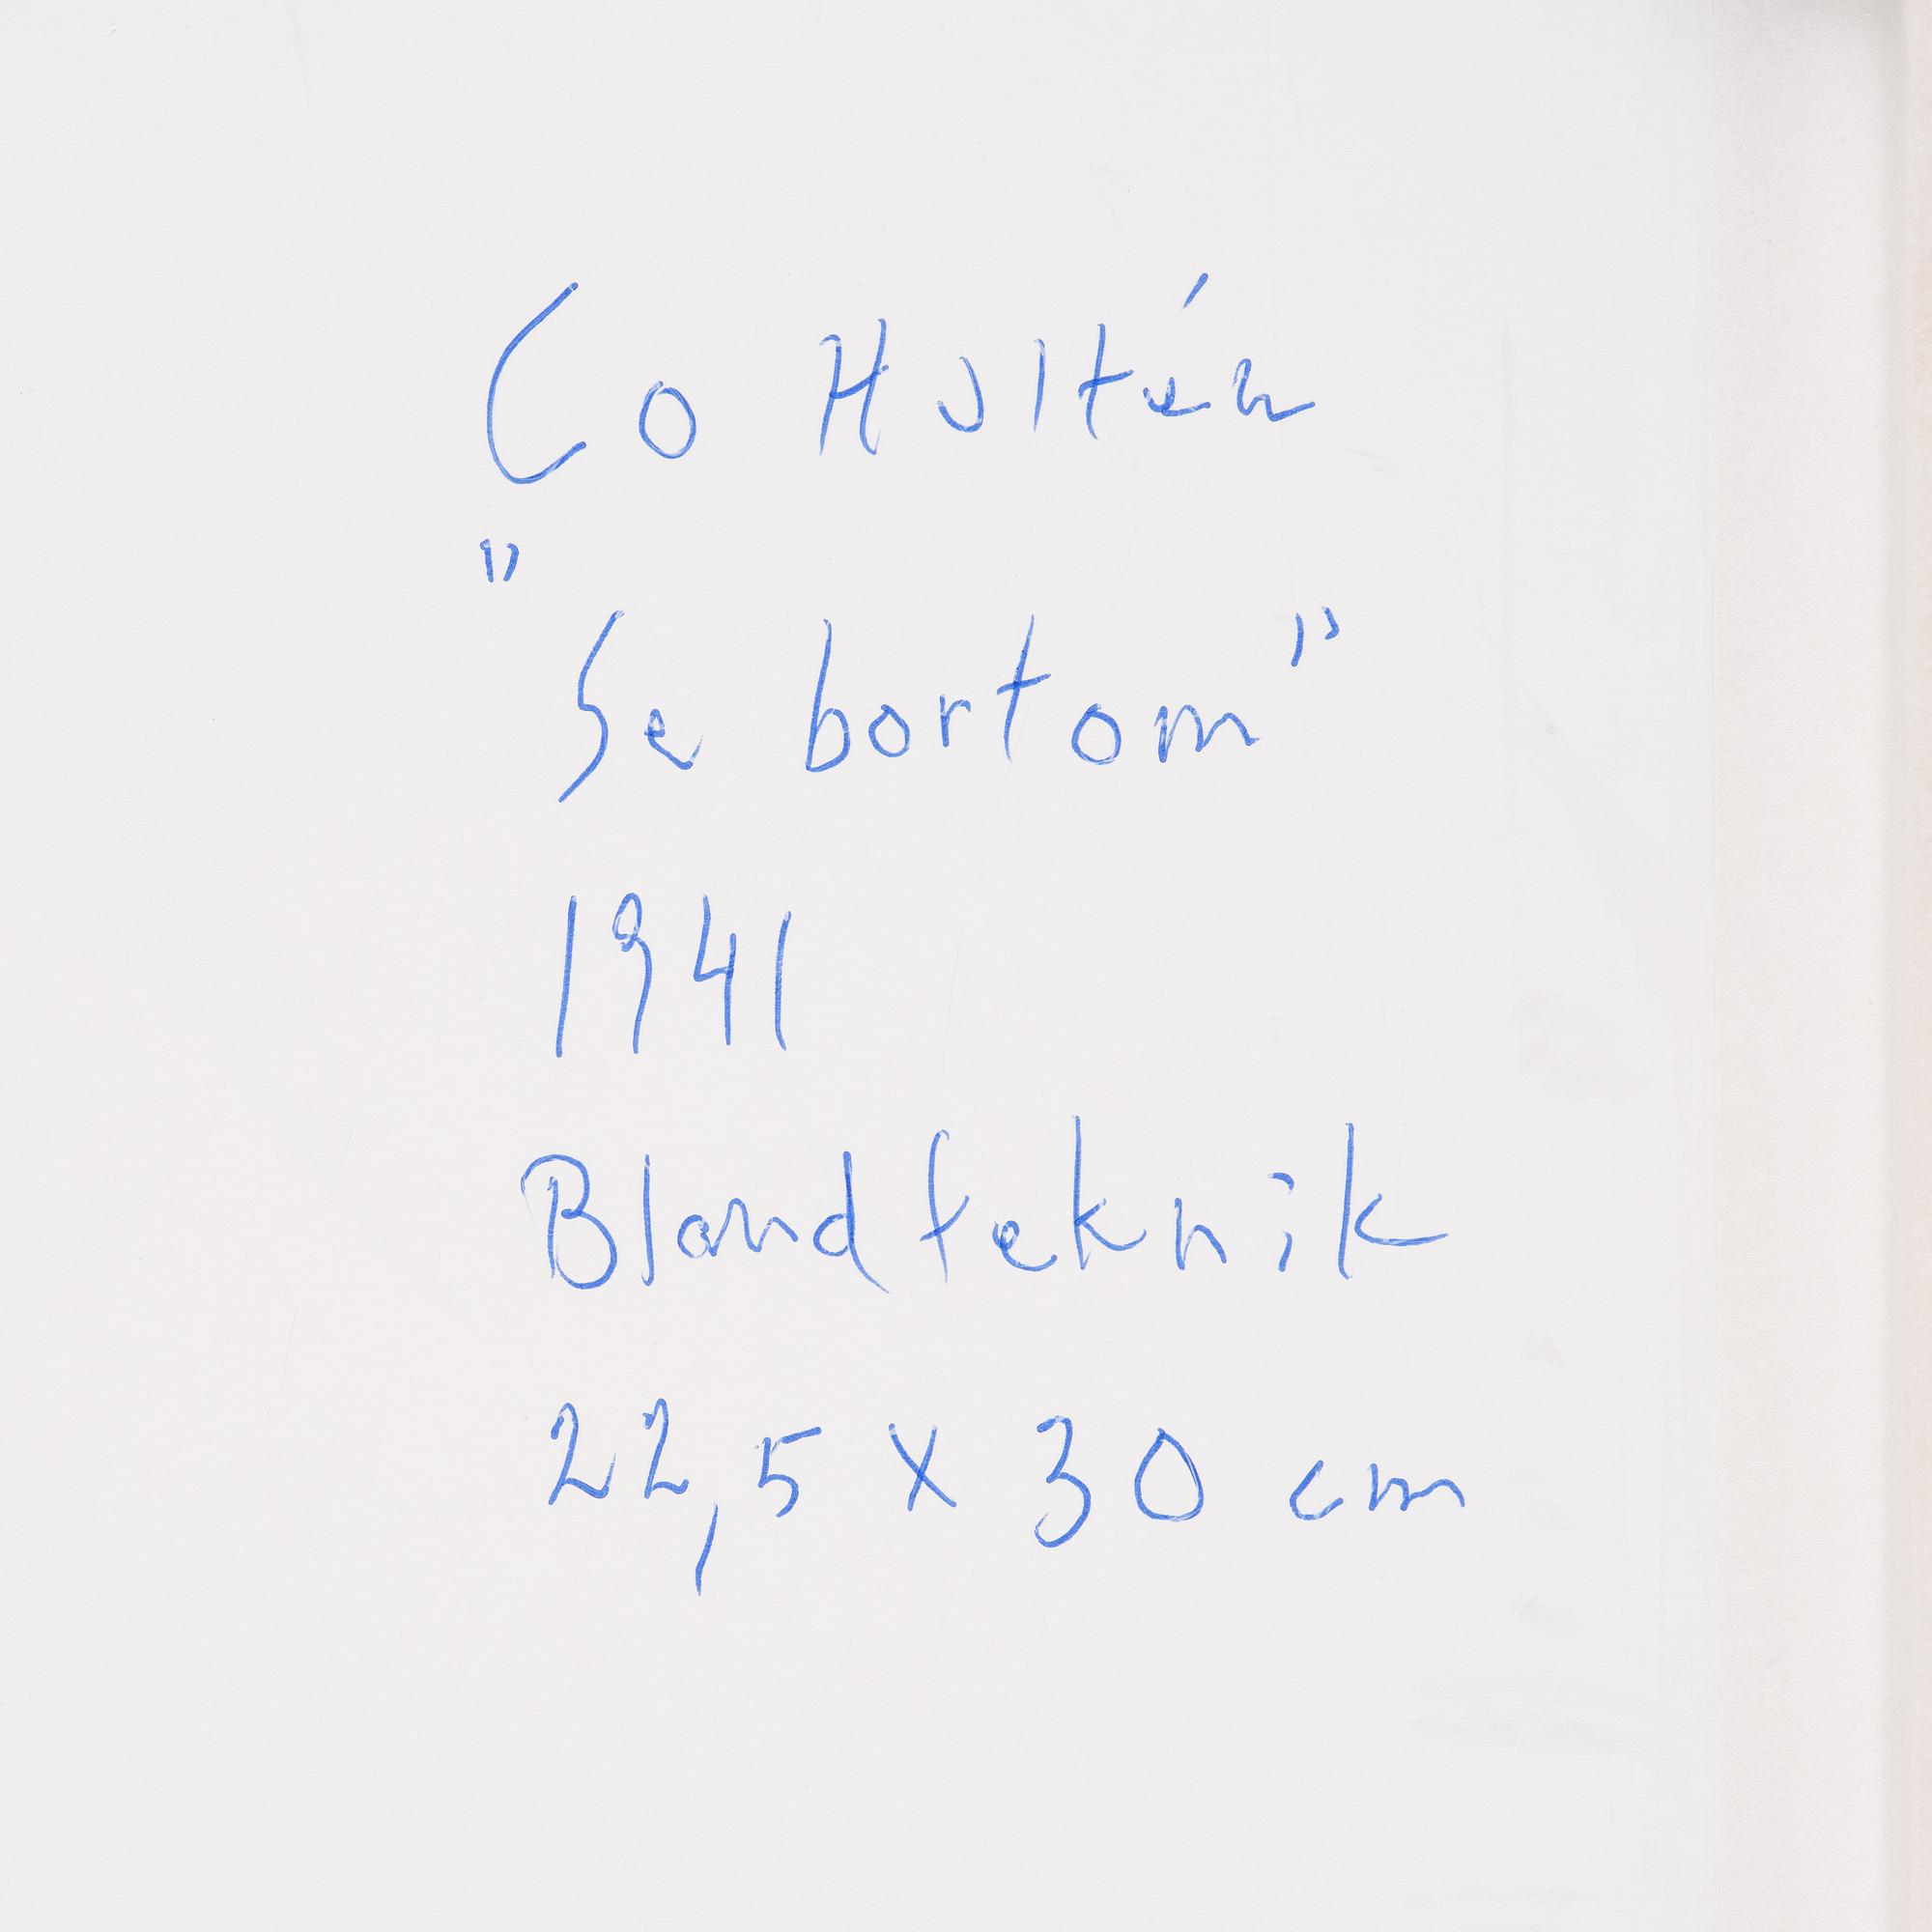 Co Hultén
"Se bortom"
1941
Blandteknik
22,5 x 30 cm